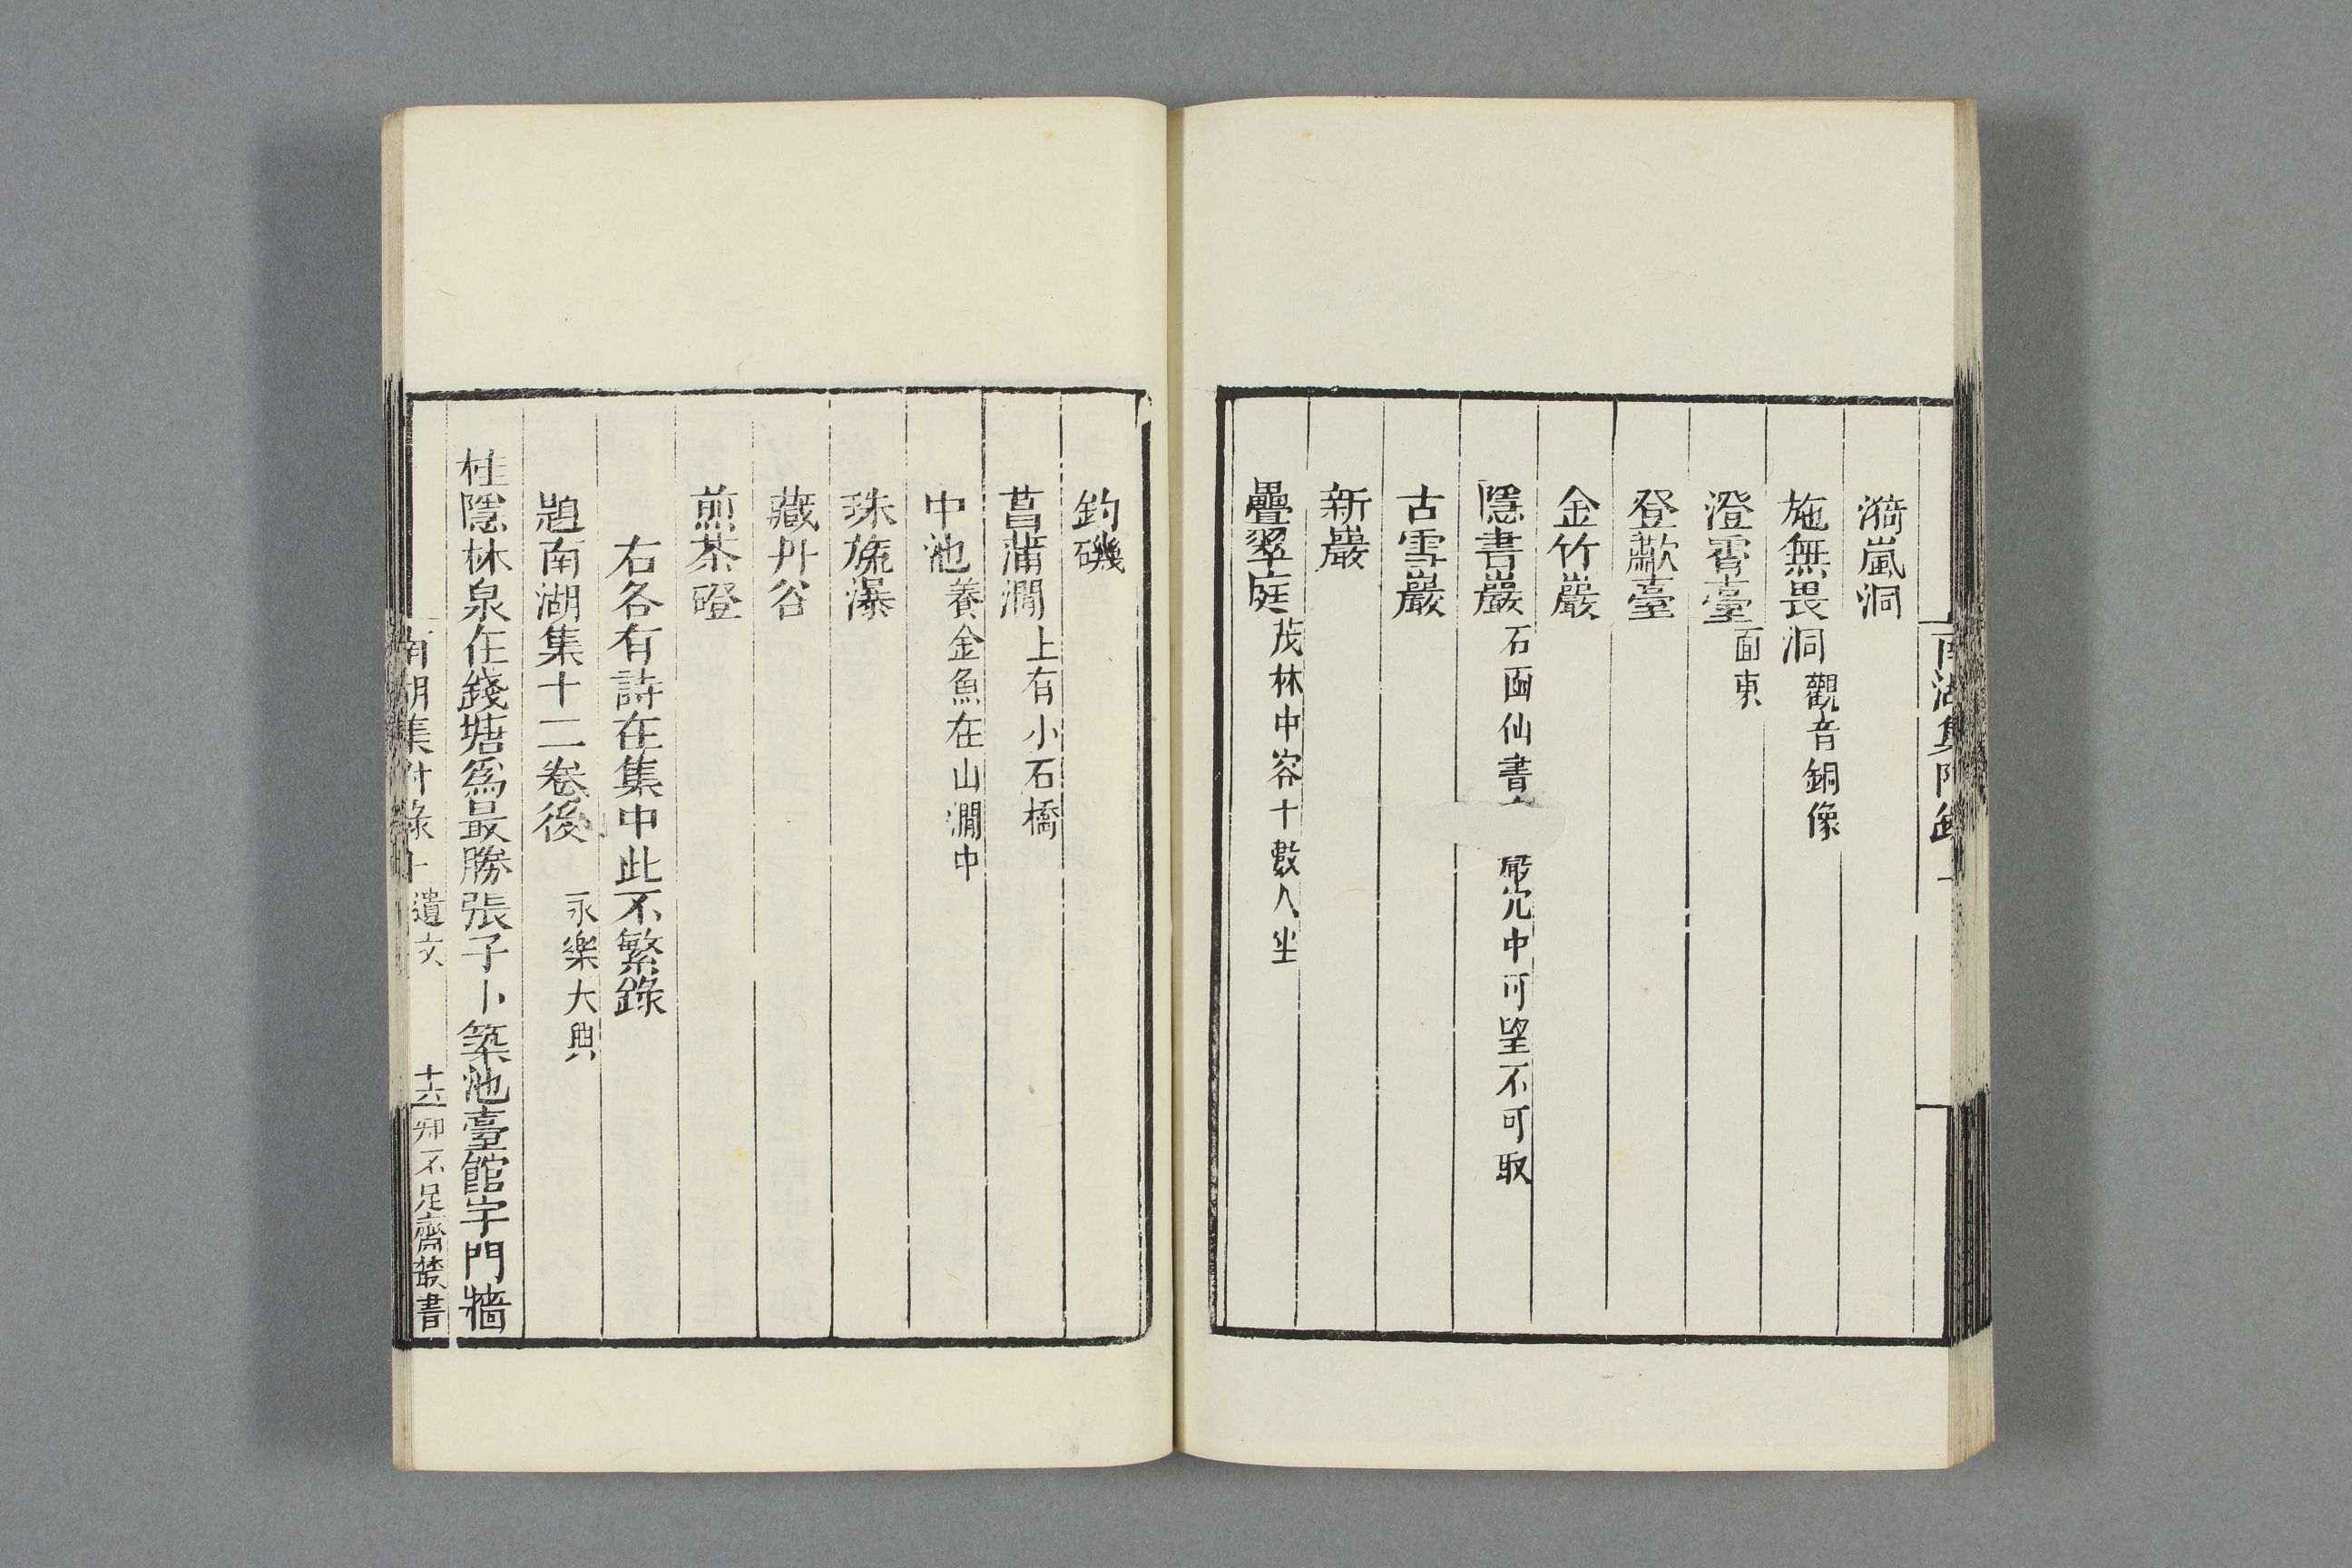 漪嵐洞
施無畏洞觀音銅像
澄霄臺面東
登歗臺
金竹巖
隱書巖石函仙書 巖穴中可望不可取
古雪巖
新巖
疊翠庭茂林中容十數人坐
釣磯
菖蒲澗上有小石橋
中池養金魚在山澗中
珠旒瀑
藏丹谷
煎茶磴
右各有詩在集中此不繁錄
題南湖集十二卷後 永樂大典
桂隱林泉在錢塘爲最勝張子卜築池臺館宇門牆
南湖集附錄上 遺文 十六 知不足齋叢書